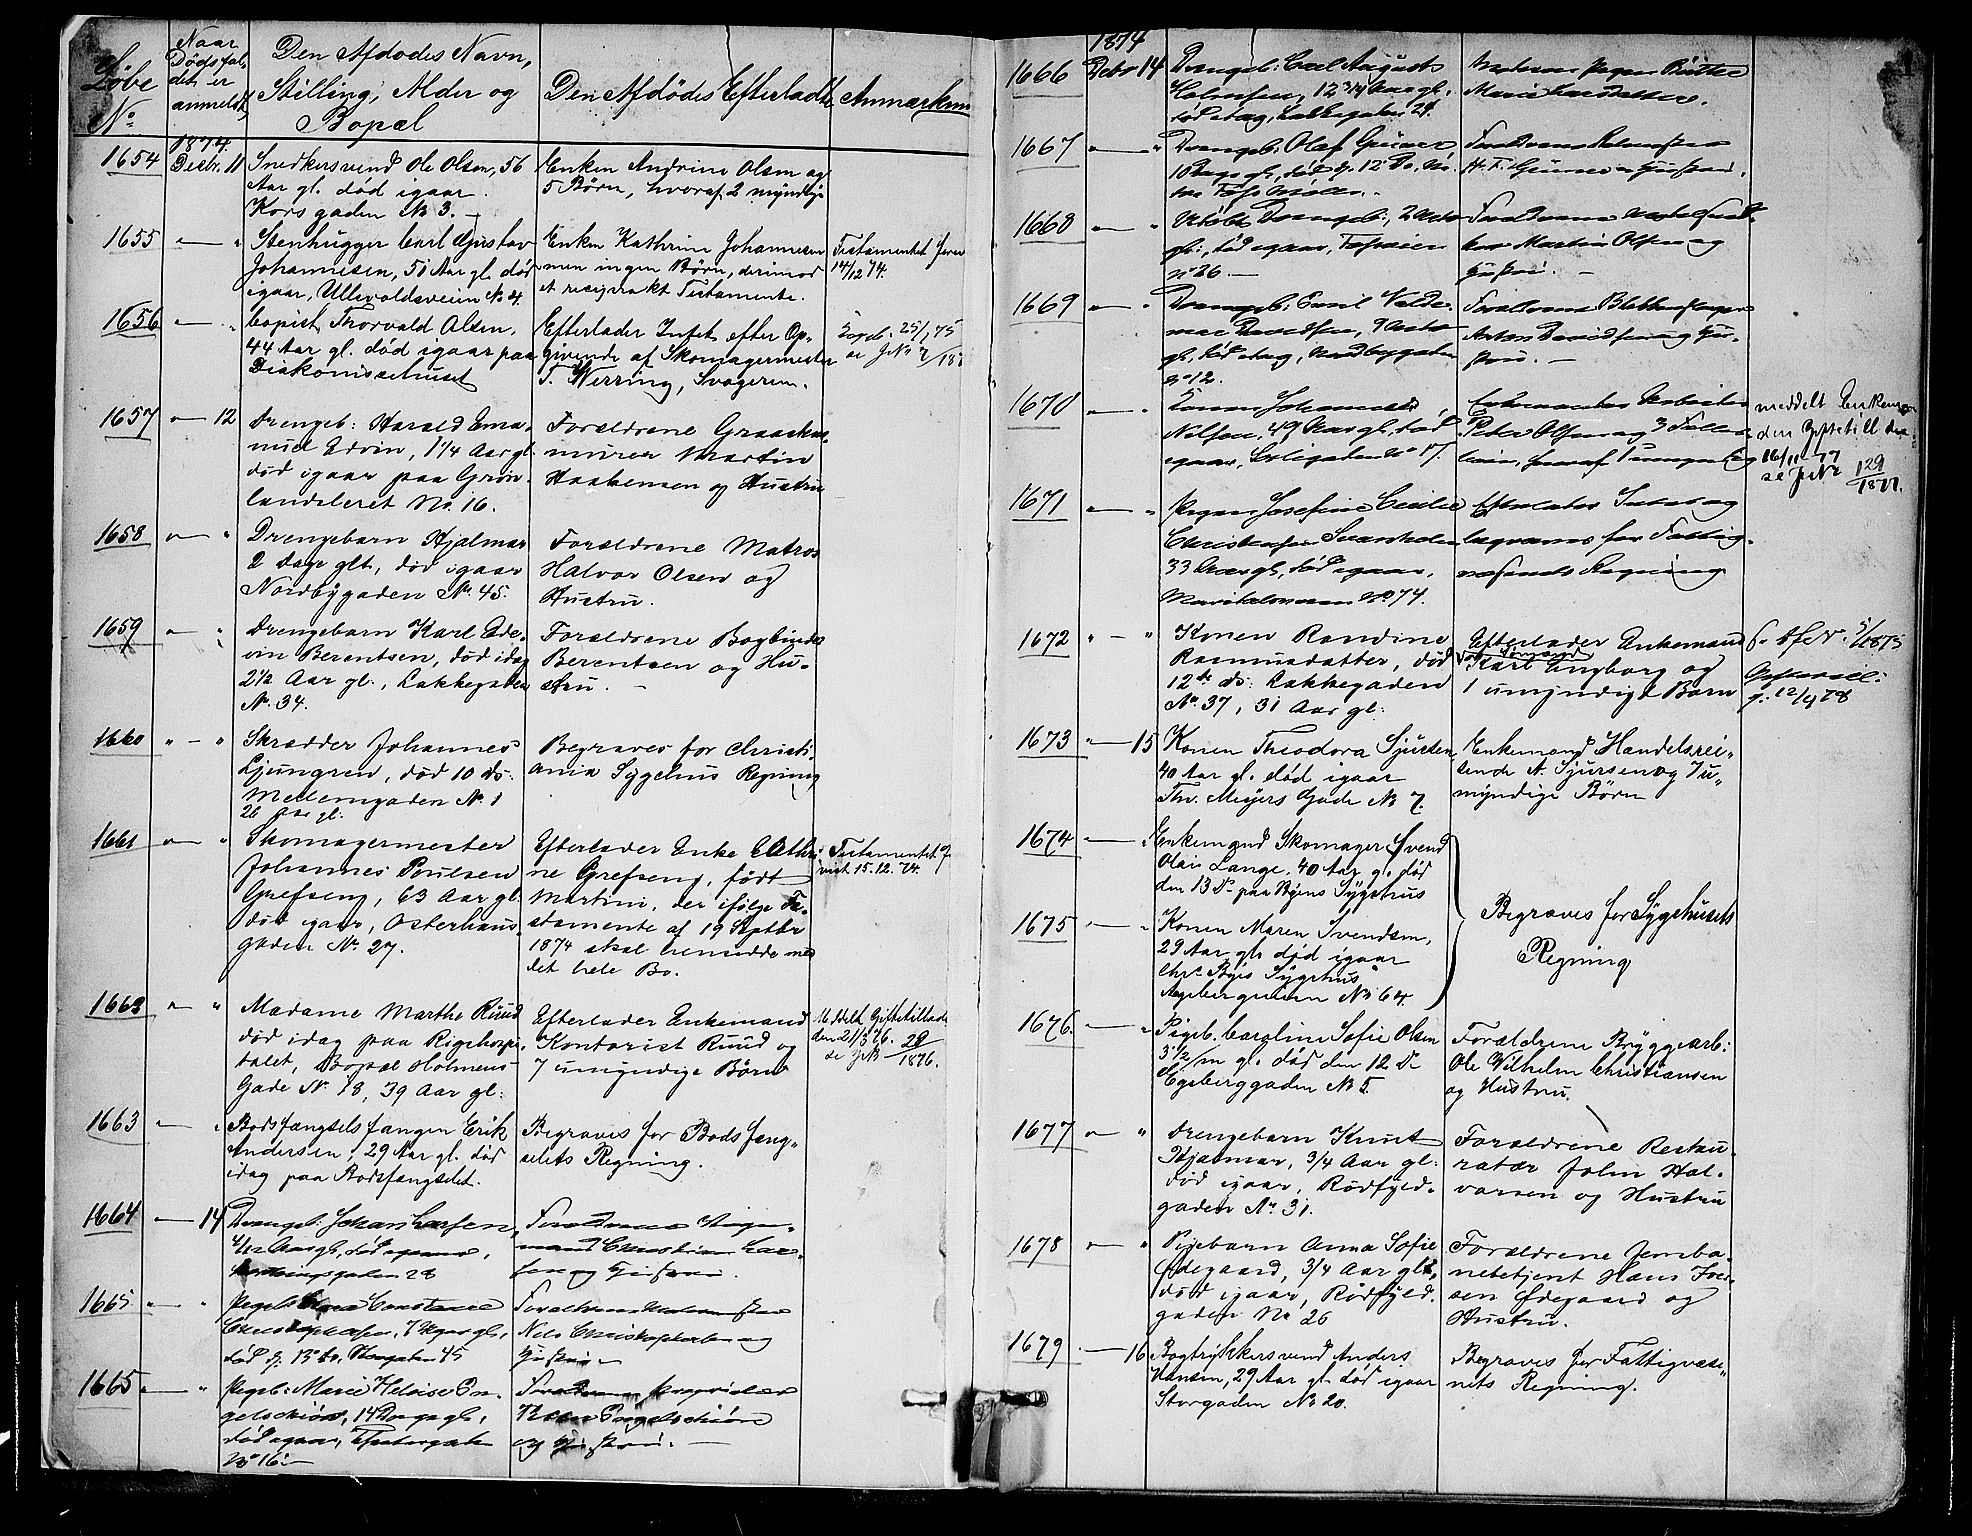 Løbe
No
Naar
Dødsfal-
det er
anmeldt
Den Afdødes Navn,
Stilling, Alder og
Bopæl
Den Afdødes Efterladte
Anmærkn
1874.
1654 Decbr. 11 Snedkersvend Ole Olsen, 56
Aar gl. død igaar.
Korsgaden No 3.
Enken Andrine Olsen og
5 Børn, hvoraf 2 myndige
1655 — " Stenhugger Carl Gustav
Johannesen, 51 Aar gl. død
igaar, Ullevoldsveien No 4.
Enken Kathrine Johannesen
men ingen Børn, derimod
et reciprokt Testamente.
Testamentet
14/12 74.
1656 — " Copist Thorvald Olsen,
44 Aar gl. død igaar paa
Diakonissehuset
Efterlader Intet efter Op-
givende af Skomagermester
T. Werring, Svogeren.
25/1 75
se JNo
1657 — 12 Drengeb: Harald Ema-
nuel Edvin, 1 1/4 Aar gl
død igaar paa Grøn-
landsleret No. 16.
Forældrene Graasten-
murer Martin
Haakensen og Hustru
1658 — " Drengebarn Hjalmar
2 Dage glt, død igaar
Nordbygaden No. 45.
Forældrene Matros
Halvor Olsen og
Hustru.
1659 — " Drengebarn Karl Ede-
vin Berentsen, død idag
2 1/2 Aar gl., Lakkegaden
No. 34.
Forældrene Bogbinder
Berentsen og Hu-
stru. —
1660 " — " Skrædder Johannes
Ljungren, død 10 ds:
Mellemgaden No. 1
26 Aar gl.
Begraves for Christi-
ania Sygehus Regning
1661 — " Skomagermester
Johannes Poulsen
Grefseng, 63 Aar gl.
død igaar, Osterhaus-
gaden No. 27.
Efterlader Enke Cathri-
ne Grefseng, født
Martini, der ifølge Te-
stamente af 19 Septbr
1874 skal hensidde med
det hele Bo.
Testamentet
15.12.74.
1662 " " Madame Marthe Ruud
død idag paa Rigshospi-
talet, Bopæl Holmens
Gade No. 18, 39 Aar gl:
Efterlader Enkemand
Kontorist Ruud og
7 umyndige Børn
Meddelt Giftetilladelse
den 21/3 76.
se JNo 29/1876.
1663 — " Bodsfængselsfangen Erik
Andersen, 29 Aar gl. død
idag paa Bodsfængslet.
Begraves for Bodsfæng-
slets Regning.
1664 — 14 Drengeb: Johan Larsen,
4/12 Aar gl., død
28
Forældrene
mand Christian Lar-
sen og Hustru.
1665 " — " Pigeb. Constance
Christophersen, 7 Aar gl.,
død d. 13 ds, Storgaden 45
Forældrene
Nels Christophersen og
Hustru. —
1665 " — " Pigeb: Marie Heloise En-
gelschiøn, 14 Dage gl.,
død igaar, Theatergaden
No 16. —
Forældrene
Engelschiøn
og Hustru. —
1874
1666 Decbr 14 Drengeb: Carl August
Halvorsen, 12 3/4 Aar gl.
død idag, Lakkegaden 24.
Moderen Pigen
Marie Larsdatter.
1667 — " Drengeb. Olaf Gruner
1 Dag gl., død d. 12 Ds, No.
Forældrene
H. F. Gruner og Hustru.
1668 — " Udøbt Drengeb:, 2
gl., død igaar,
No 26. —
Forældrene
Martin Olsen og
Hustru. —
1669 — " Drengeb: Emil Valde-
mar Davidsen, 9
gl., død idag, Nordbygaden
No 12.
Forældrene
Anton Davidsen og Hu-
stru. —
1670 — " Konen Johanne
Nilsen, 49 Aar gl., død
igaar, No 17.
Enkemanden Arbeider
Peter Olsen og 3 Fælles-
børn, hvoraf 1 umyndig
meddelt Enkeman-
den Giftetill den
16/11 77
se JNr 129/1877.
1671 — " Pigen Josefine Cecilie
Christensen Svanholm
33 Aar gl., død igaar,
No 74.
Efterlader Intet og
begraves for Fattig-
væsenets Regning
1672 " — " Konen Randine
Rasmusdatter, død
12te ds: Lakkegaden
No. 37, 31 Aar gl:
Efterlader Enkemand
Karl Engborg og
1 umyndigt Barn
5/1875
12/4 78
1673 " — 15 Konen Theodora Sjursen
40 Aar gl. død igaar
Th. Meyers Gade No 7.
Enkemand Handelsrei-
sende A. Sjursen og 7 u-
myndige Børn
1674 — " Enkemand Skomager Svend
Olais Lange, 40 Aar gl. død
den 13 Ds paa Byens Sygehus
1675 — " Konen Maren Svendsen,
29 Aar gl. død igaar
Chra Byes Sygehus
No 64.
Begraves for Sygehusets
Regning
1676. — " Pigeb. Caroline Sofie Olsen
3 1/2 m gl. død den 12 Ds
Egeberggaden No 5.
Forældrene Bryggearb:
Ole Vilhelm Christiansen
og Hustru.
1677 — " Drengebarn Knut
Hjalmar, 3/4 Aar gl:
død igaar, Rødfyld-
gaden No. 31.
Forældrene Restau-
ratør John Hal-
varsen og Hustru
1678 — " Pigebarn Anna Sofie
Ødegaard, 3/4 Aar glt,
død igaar, Rødfyld-
gaden No 26
Forældrene Jernba-
nebetjent Hans Iver-
sen Ødegaard og
Hustru.
1679 — 16 Bogtrykkersvend Anders
Hansen, 29 Aar gl. død igaar
Storgaden No 20.
Begraves for Fattigvæse-
nets Regning.